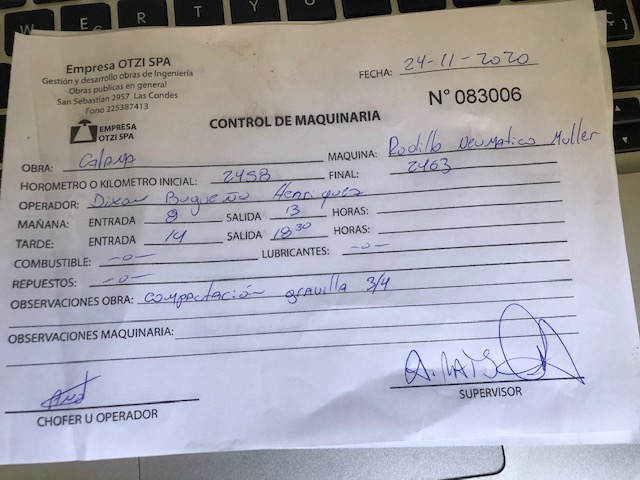 Empresa OTZI SPA
Gestión y desarrollo obras de Ingeniería
Obras publicas en general
San Sebastián 2957 Las Condes
Fono 225387413
FECHA: 24-11-2020
EMPRESA
OTZI SPA
CONTROL DE MAQUINARIA
N° 083006
OBRA: MAQUINA: Rodillo Neumatico Muller
HOROMETRO O KILOMETRO INICIAL: 2458 FINAL: 2463
OPERADOR: Henriquez
MAÑANA: ENTRADA 8 SALIDA 13 HORAS:
TARDE: ENTRADA 14 SALIDA 18:30 HORAS:
COMBUSTIBLE: -0- LUBRICANTES: -0-
REPUESTOS: -0-
OBSERVACIONES OBRA: compactación gravilla 3/4
OBSERVACIONES MAQUINARIA:
CHOFER U OPERADOR
SUPERVISOR
W
E
R
T
Y
U